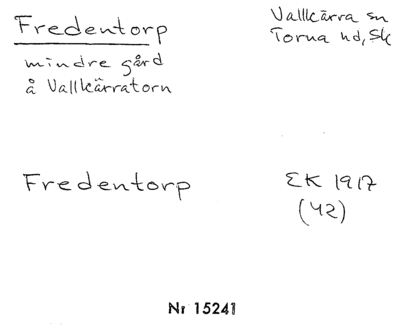 Fredentorp
Vallkärra sn
Torna hd, Sk
mindre gård
å Vallkärratorn
Fredentorp
EK 1917
(42)
Nr 15241